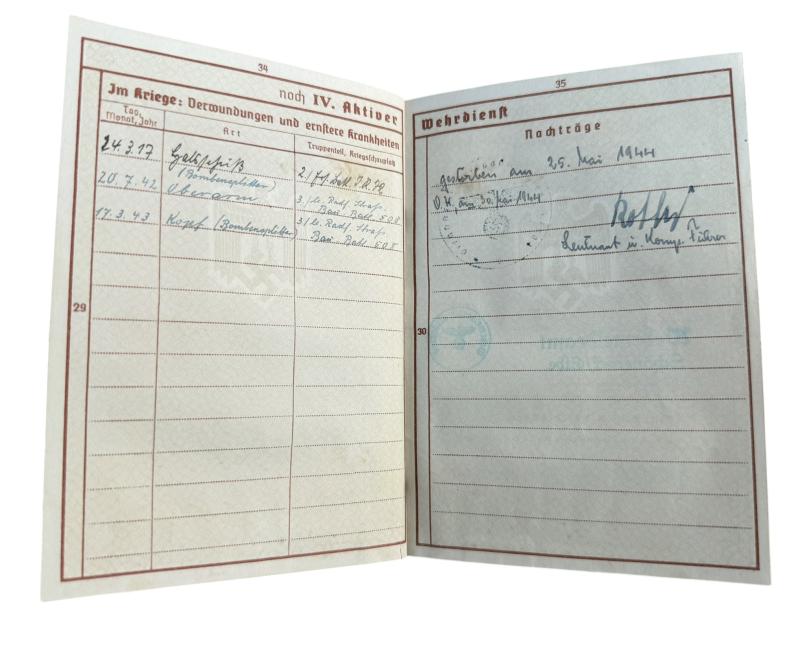 34
noch IV. Aktiver
Im Kriege: Verwundungen und ernstere Krankheiten
Tag, Monat, Jahr
Art
Truppenteil, Kriegsschauplatz
24.3.17
Halsschuß
2./ J.R. 78
20.7.42
(Bombensplitter)
Oberarm
3./le. Radf. Straß.
Bau Batl. 508
17.3.43
Kopf (Bombensplitter)
3./le. Radf. Straß.
Bau Batl. 508
29
35
Wehrdienst
Nachträge
gestorben am 25. Mai 1944
O.U., am 30. Mai 1944
Leutnant u. Komp. Führer
30